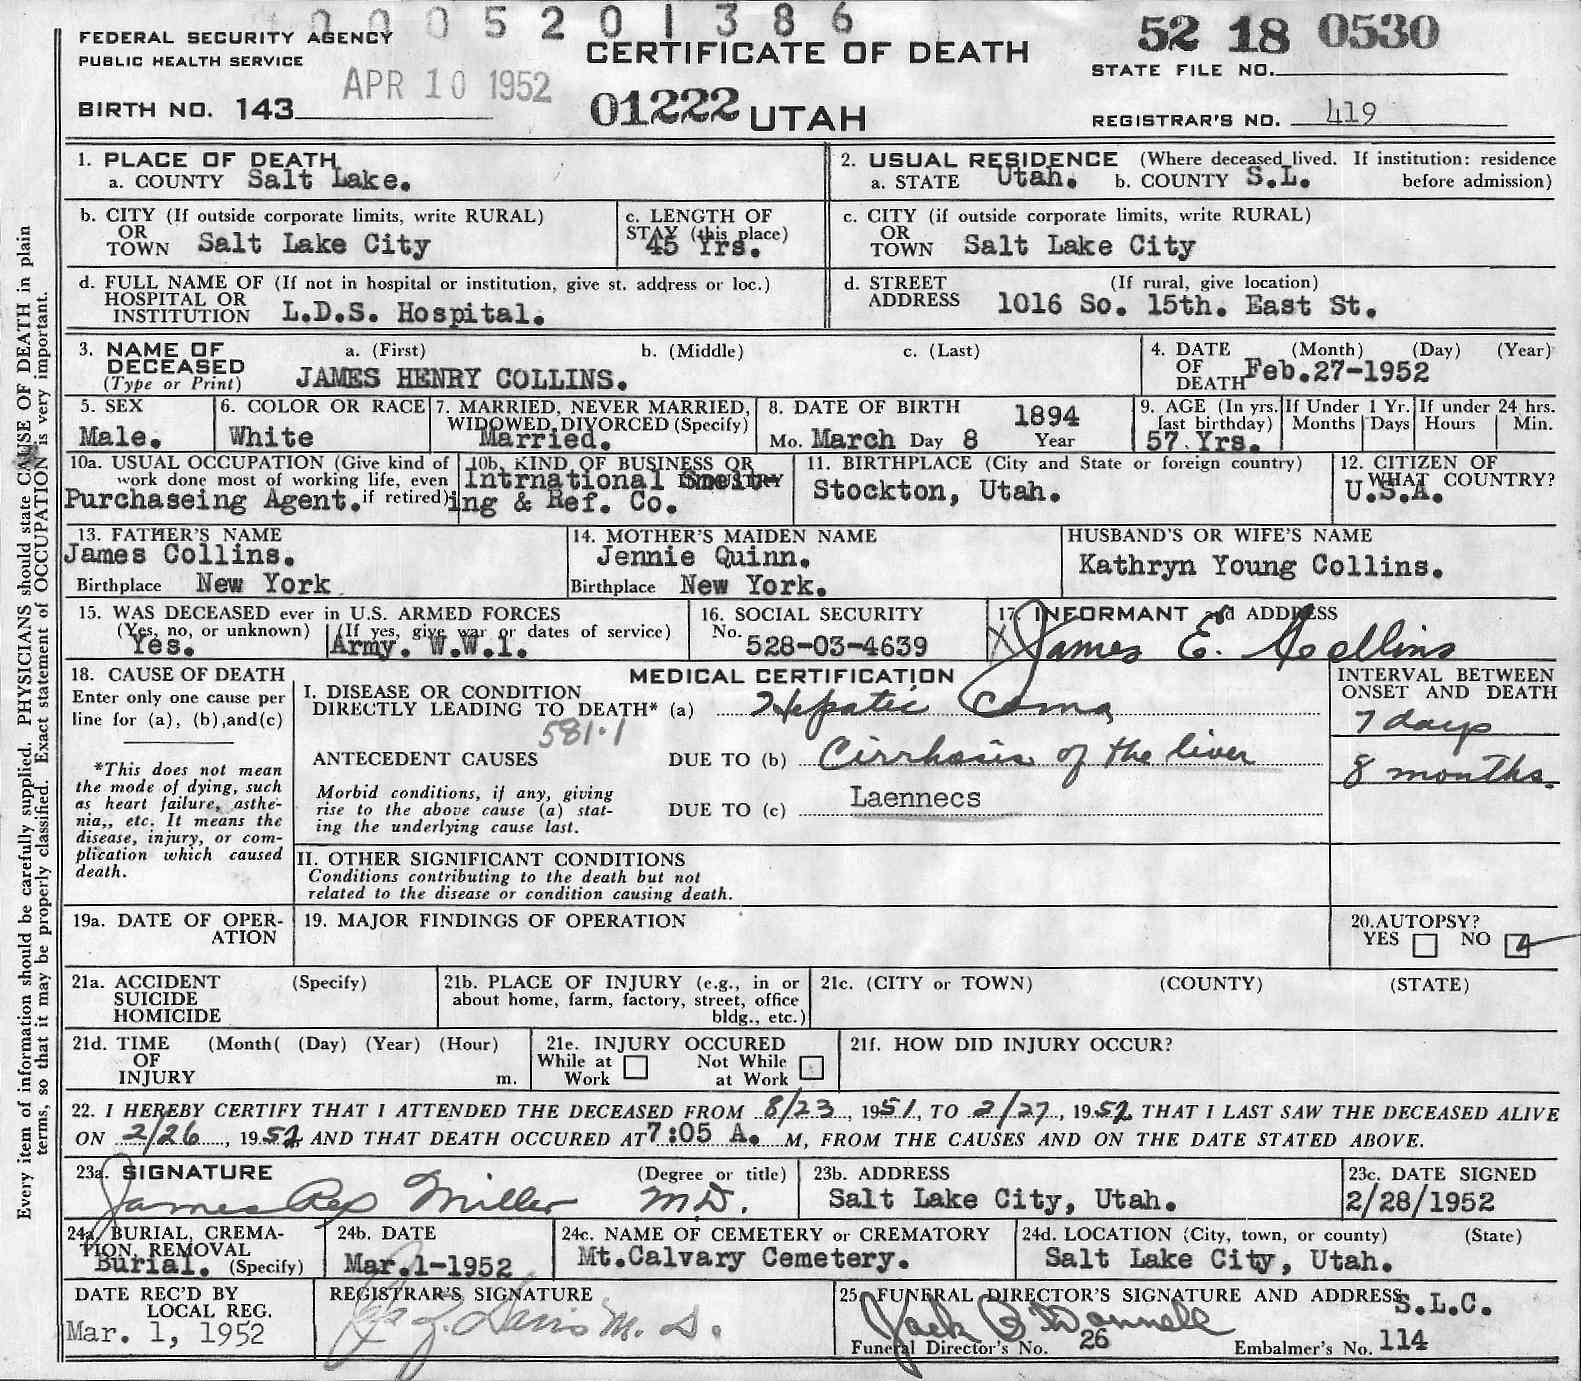 0005201386
52 18 0530
FEDERAL SECURITY AGENCY
PUBLIC HEALTH SERVICE
CERTIFICATE OF DEATH
STATE FILE NO.
APR 10 1952
BIRTH NO. 143
01222 UTAH
REGISTRAR'S NO. 419
1. PLACE OF DEATH
a. COUNTY Salt Lake.
2. USUAL RESIDENCE (Where deceased lived. If institution: residence before admission)
a. STATE Utah. b. COUNTY S.L.
b. CITY (If outside corporate limits, write RURAL)
OR
TOWN Salt Lake City
c. LENGTH OF
STAY (this place)
45 Yrs.
c. CITY (if outside corporate limits, write RURAL)
OR
TOWN Salt Lake City
d. FULL NAME OF (If not in hospital or institution, give st. address or loc.)
HOSPITAL OR
INSTITUTION L.D.S. Hospital.
d. STREET (If rural, give location)
ADDRESS 1016 So. 15th. East St.
3. NAME OF a. (First) b. (Middle) c. (Last)
DECEASED
(Type or Print) JAMES HENRY COLLINS.
4. DATE (Month) (Day) (Year)
OF
DEATH Feb.27-1952
5. SEX
Male.
6. COLOR OR RACE
White
7. MARRIED, NEVER MARRIED,
WIDOWED, DIVORCED (Specify)
Married.
8. DATE OF BIRTH 1894
Mo. March Day 8 Year
9. AGE (In yrs.
last birthday)
57 Yrs.
If Under 1 Yr.
Months Days
If under 24 hrs.
Hours Min.
10a. USUAL OCCUPATION (Give kind of
work done most of working life, even
Purchaseing Agent. if retired)
10b. KIND OF BUSINESS OR
INDUSTRY
Intrnational Smelt-
ing & Ref. Co.
11. BIRTHPLACE (City and State or foreign country)
Stockton, Utah.
12. CITIZEN OF
WHAT COUNTRY?
U.S.A.
13. FATHER'S NAME
James Collins.
Birthplace New York
14. MOTHER'S MAIDEN NAME
Jennie Quinn.
Birthplace New York.
HUSBAND'S OR WIFE'S NAME
Kathryn Young Collins.
15. WAS DECEASED ever in U.S. ARMED FORCES
(Yes, no, or unknown) (If yes, give war or dates of service)
Yes. Army. W.W.1.
16. SOCIAL SECURITY
No. 528-03-4639
17. INFORMANT and ADDRESS
X James E. Collins
18. CAUSE OF DEATH
Enter only one cause per
line for (a), (b), and (c)
*This does not mean
the mode of dying, such
as heart failure, asthe-
nia,, etc. It means the
disease, injury, or com-
plication which caused
death.
MEDICAL CERTIFICATION
INTERVAL BETWEEN
ONSET AND DEATH
I. DISEASE OR CONDITION
DIRECTLY LEADING TO DEATH* (a) Hepatic Coma 7 days
581.1
ANTECEDENT CAUSES DUE TO (b) Cirrhosis of the liver 8 months.
Morbid conditions, if any, giving
rise to the above cause (a) stat-
ing the underlying cause last.
DUE TO (c) Laennecs
II. OTHER SIGNIFICANT CONDITIONS
Conditions contributing to the death but not
related to the disease or condition causing death.
19a. DATE OF OPER-
ATION
19. MAJOR FINDINGS OF OPERATION
20. AUTOPSY?
YES NO
21a. ACCIDENT (Specify)
SUICIDE
HOMICIDE
21b. PLACE OF INJURY (e.g., in or
about home, farm, factory, street, office
bldg., etc.)
21c. (CITY or TOWN) (COUNTY) (STATE)
21d. TIME (Month( (Day) (Year) (Hour)
OF
INJURY m.
21e. INJURY OCCURED
While at Work Not While at Work
21f. HOW DID INJURY OCCUR?
22. I HEREBY CERTIFY THAT I ATTENDED THE DECEASED FROM 8/23, 1951, TO 2/27, 1952 THAT I LAST SAW THE DECEASED ALIVE
ON 2/26, 1952 AND THAT DEATH OCCURED AT 7:05 A. M, FROM THE CAUSES AND ON THE DATE STATED ABOVE.
23a. SIGNATURE (Degree or title)
James Rex Miller M.D.
23b. ADDRESS
Salt Lake City, Utah.
23c. DATE SIGNED
2/28/1952
24a. BURIAL, CREMA-
TION, REMOVAL
Burial. (Specify)
24b. DATE
Mar.1-1952
24c. NAME OF CEMETERY or CREMATORY
Mt.Calvary Cemetery.
24d. LOCATION (City, town, or county) (State)
Salt Lake City, Utah.
DATE REC'D BY
LOCAL REG.
Mar. 1, 1952
REGISTRAR'S SIGNATURE
Davis M. D.
25. FUNERAL DIRECTOR'S SIGNATURE AND ADDRESS
S.L.C.
Jack O'Donnell
Funeral Director's No. 26 Embalmer's No. 114
Every item of information should be carefully supplied. PHYSICIANS should state CAUSE OF DEATH in plain
terms, so that it may be properly classified. Exact statement of OCCUPATION is very important.